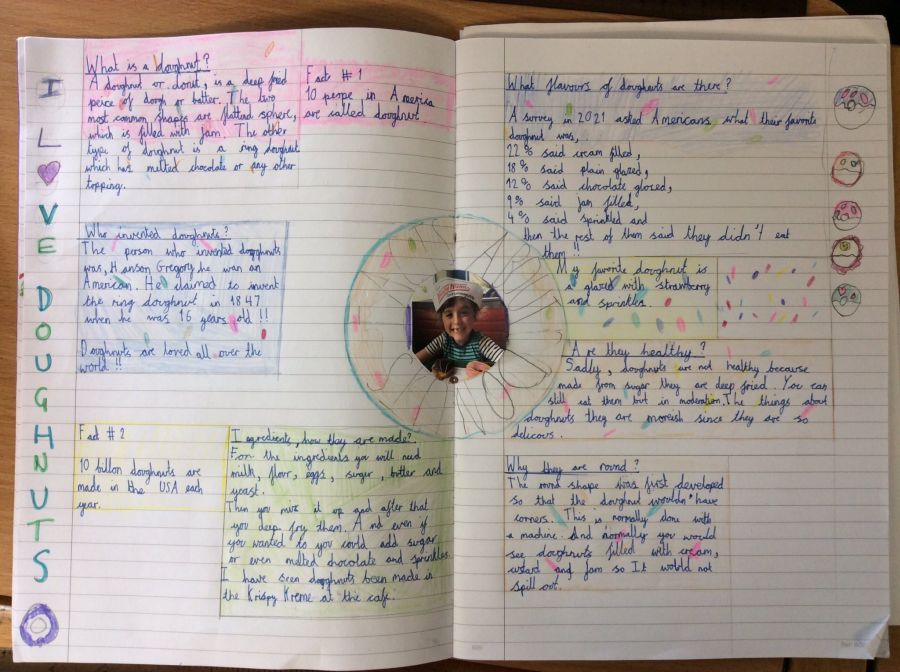 I
L
VE
DOUGHNUTS
What is a doughnut?
A doughnut or donut, is a deep fried
peice of dorgh or batter. The two
most common shapes are flattad sphere,
which is filled with jam. The other
type of doughnut is a ring doughnut
which has melted chocolate or any other
topping.
Fact #1
10 peope in America
are called doughnut
Who invented doughnuts?
The person who invented doughnuts
was, Hanson Gregory, he wan an
American. He claimed to invent
the ring doughnut in 1847
when he was 16 years old !!
Doughnuts are loved all over the
world !!
Fact #2
10 billon doughnuts are
made in the USA each
year.
Igredients, how they are made?
For the ingredients you will need
milk, flour, eggs, surger, butter and
yeast.
Then you mix it up and after that
you deep fry them. And even if
you wanted to you could add sugar
or even melted chocolate and sprinkles.
I have seen doughnuts been made in
the Krispy Kreme at the cafe.
What flavours of doughnuts are there?
A survey in 2021 asked Americans what their favorite
doughnut was,
22% said cream filled,
18% said plain glazed,
12% said chocolate glazed,
9% said jam filled,
4% said sprinkled and
then the rest of them said they didn't eat
them !!
My favorite doughnut is
a glazed with strawberry
and sprinkles.
Are they healthy?
Sadly, doughnuts are not healthy because
made from sugar they are deep fried. You can
still eat them but in moderation. The things about
doughnuts they are moreish since they are so
delicous.
Why they are round?
The round shape was first developed
so that the doughnut wouldn't have
corners. This is normally done with
a machine. And normally you would
see doughnuts filled with cream,
custard and jam so It would not
spill out.